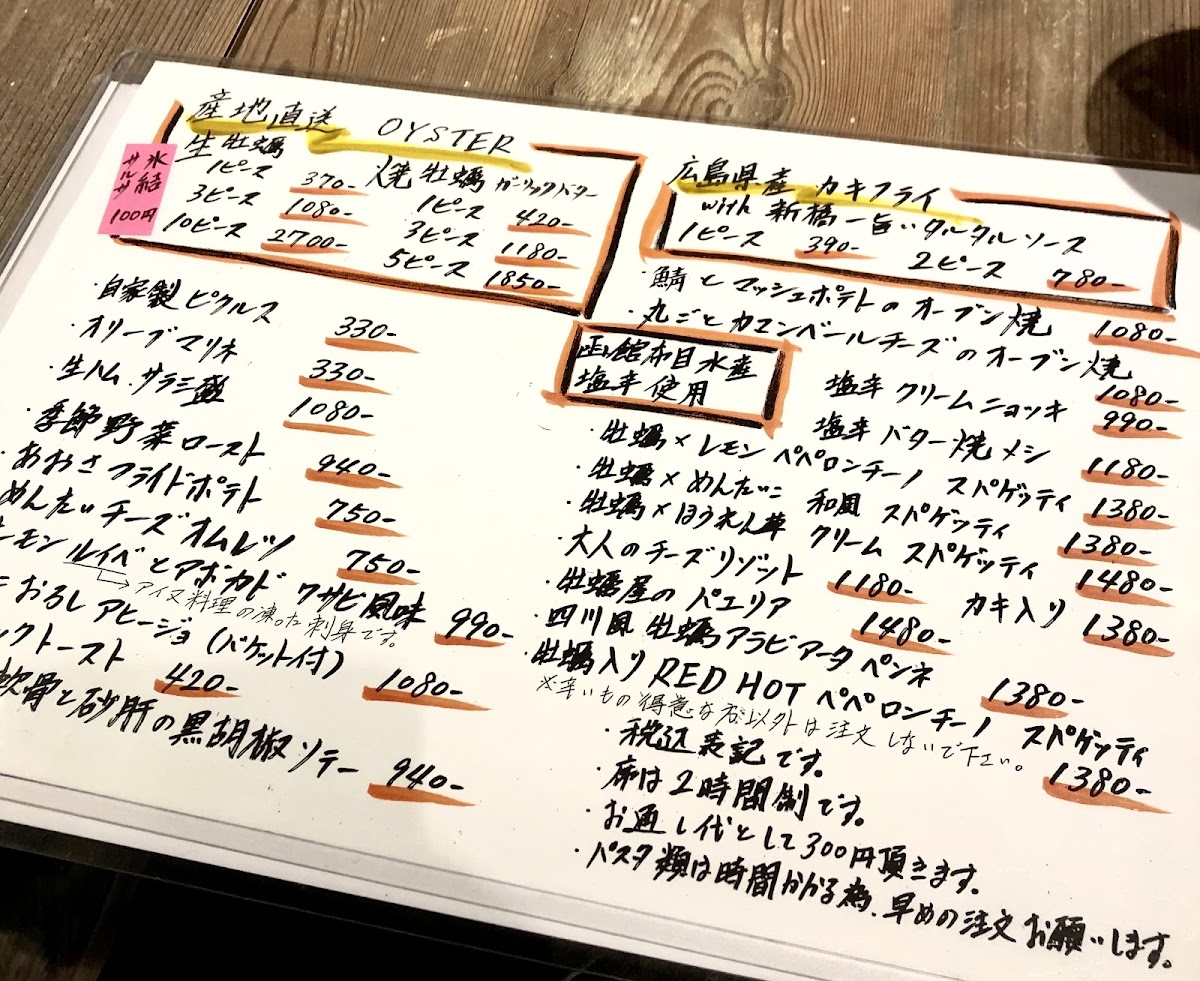 産地直送 OYSTER
氷結
サルサ
100円
生牡蠣
1ピース 370-
3ピース 1080-
10ピース 2700-
焼牡蠣 ガーリックバター
1ピース 420-
3ピース 1180-
5ピース 1850-
・自家製ピクルス 330-
・オリーブマリネ 330-
・生ハム サラミ盛 1080-
・季節野菜ロースト 940-
・あおさフライドポテト 750-
めんたいチーズオムレツ 750-
ーモンルイベとアボカド ワサビ風味 990-
アイヌ料理の凍った刺身です。
おろしアヒージョ(バケット付) 1080-
ックトースト 420-
軟骨と砂肝の黒胡椒ソテー 940-
広島県産 カキフライ
with 新橋一旨いタルタルソース
1ピース 390-
2ピース 780-
・鯖とマッシュポテトのオーブン焼 1080-
・丸ごとカマンベールチーズのオーブン焼 1080-
函館布目水産
塩辛使用
塩辛クリームニョッキ 990-
塩辛バター焼メシ 1180-
・牡蠣×レモン ペペロンチーノ スパゲッティ 1380-
・牡蠣×めんたいこ 和風 スパゲッティ 1380-
・牡蠣×ほうれん草 クリーム スパゲッティ 1480-
・大人のチーズリゾット 1180- カキ入り 1380-
・牡蠣屋のパエリア 1480-
・四川風牡蠣アラビアータペンネ 1380-
・牡蠣入りRED HOT ペペロンチーノ スパゲッティ 1380-
※辛いもの得意な方以外は注文しないで下さい。
・税込表記です。
・席は2時間制です。
・お通し代として300円頂きます。
・パスタ類は時間かかる為、早めの注文お願いします。